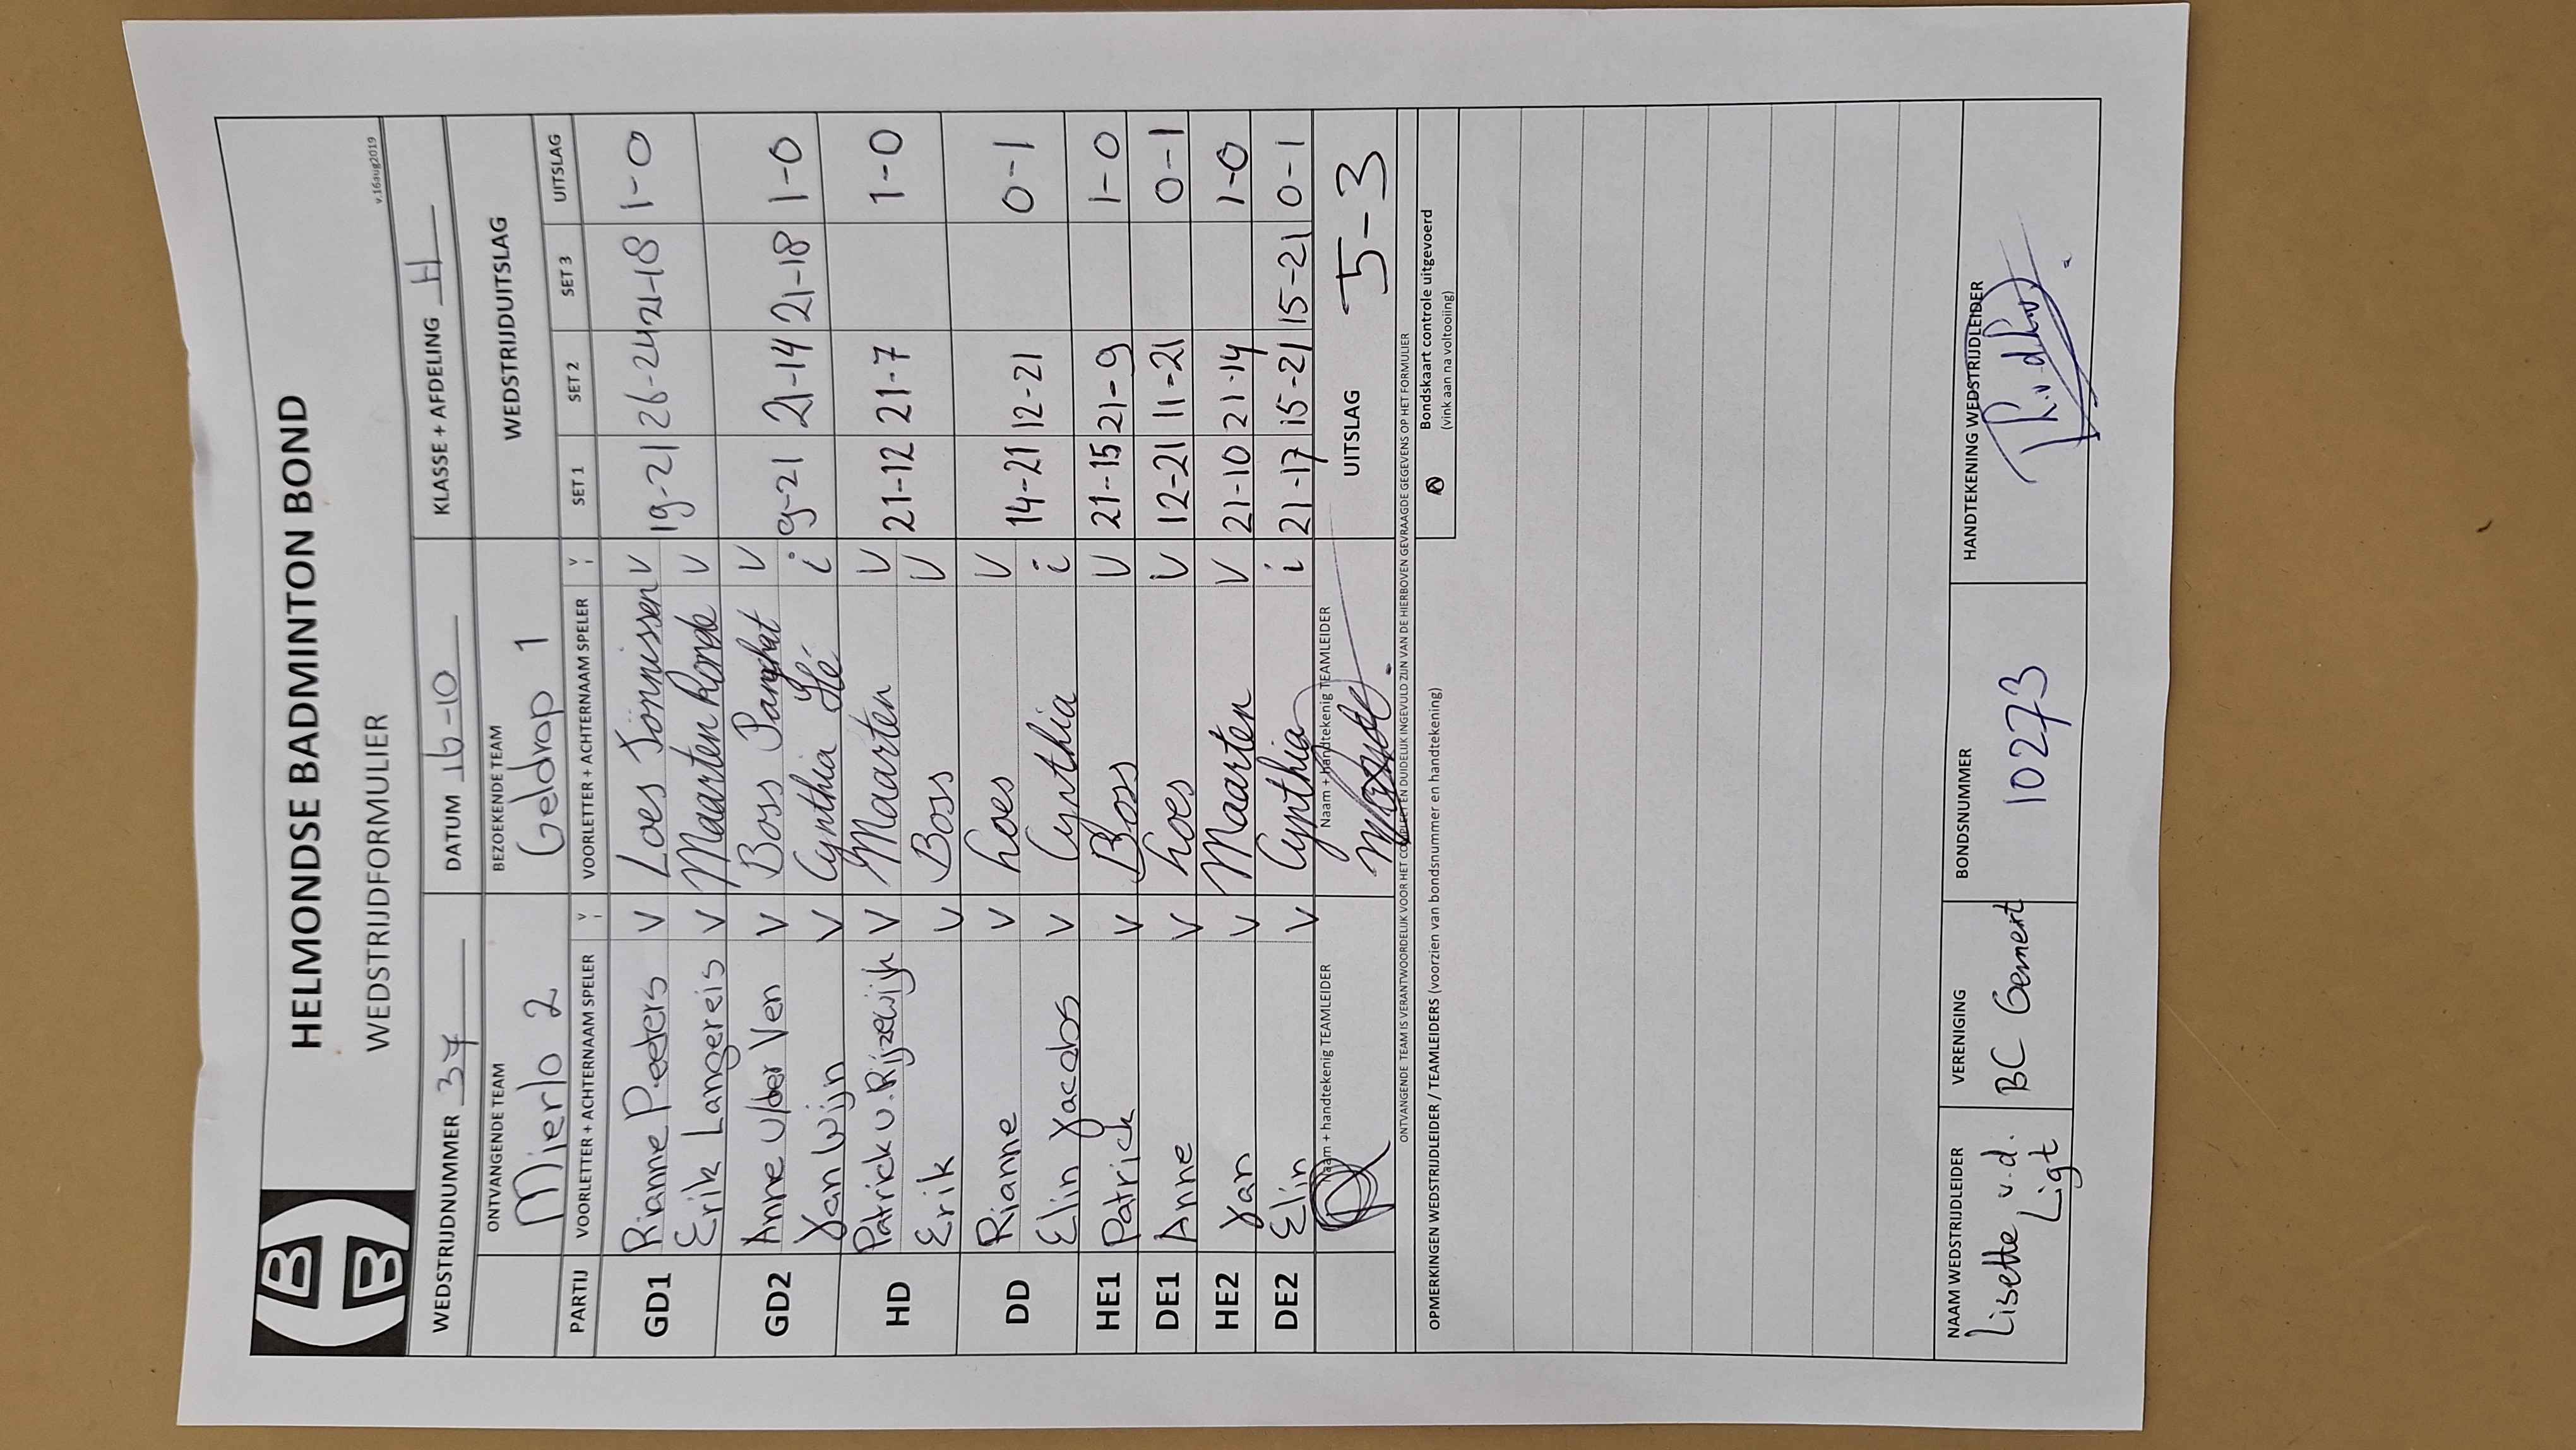 HELMONDSE BADMINTON BOND
WEDSTRIJDFORMULIER
v.16aug2019
WEDSTRIJDNUMMER 37 DATUM 16-10 KLASSE + AFDELING H
ONTVANGENDE TEAM BEZOEKENDE TEAM WEDSTRIJDUITSLAG
Mierlo 2 Geldrop 1
PARTIJ VOORLETTER + ACHTERNAAM SPELER V i VOORLETTER + ACHTERNAAM SPELER V i SET 1 SET 2 SET 3 UITSLAG
GD1 Rianne Peeters V Loes Tönnissen V 19-21 26-24 21-18 1-0
Erik Langereis V Maarten V
GD2 Anne v/der Ven V Boss V 9-21 21-14 21-18 1-0
Yan Wijn V Cynthia i
HD Patrick v. Rijzewijk V Maarten V 21-12 21-7 1-0
Erik V Boss V
DD Rianne V Loes V 14-21 12-21 0-1
Elin Yacobs V Cynthia i
HE1 Patrick V Boss V 21-15 21-9 1-0
DE1 Anne V Loes V 12-21 11-21 0-1
HE2 Yan V Maarten V 21-10 21-14 1-0
DE2 Elin V Cynthia i 21-17 15-21 15-21 0-1
Naam + handtekenig TEAMLEIDER Naam + handtekenig TEAMLEIDER UITSLAG 5-3
ONTVANGENDE TEAM IS VERANTWOORDELIJK VOOR HET COMPLEET EN DUIDELIJK INGEVULD ZIJN VAN DE HIERBOVEN GEVRAAGDE GEGEVENS OP HET FORMULIER
OPMERKINGEN WEDSTRIJDLEIDER / TEAMLEIDERS (voorzien van bondsnummer en handtekening)
Bondskaart controle uitgevoerd
(vink aan na voltooiing)
NAAM WEDSTRIJDLEIDER VERENIGING BONDSNUMMER HANDTEKENING WEDSTRIJDLEIDER
Lisette v.d. BC Gemert 10273
Ligt